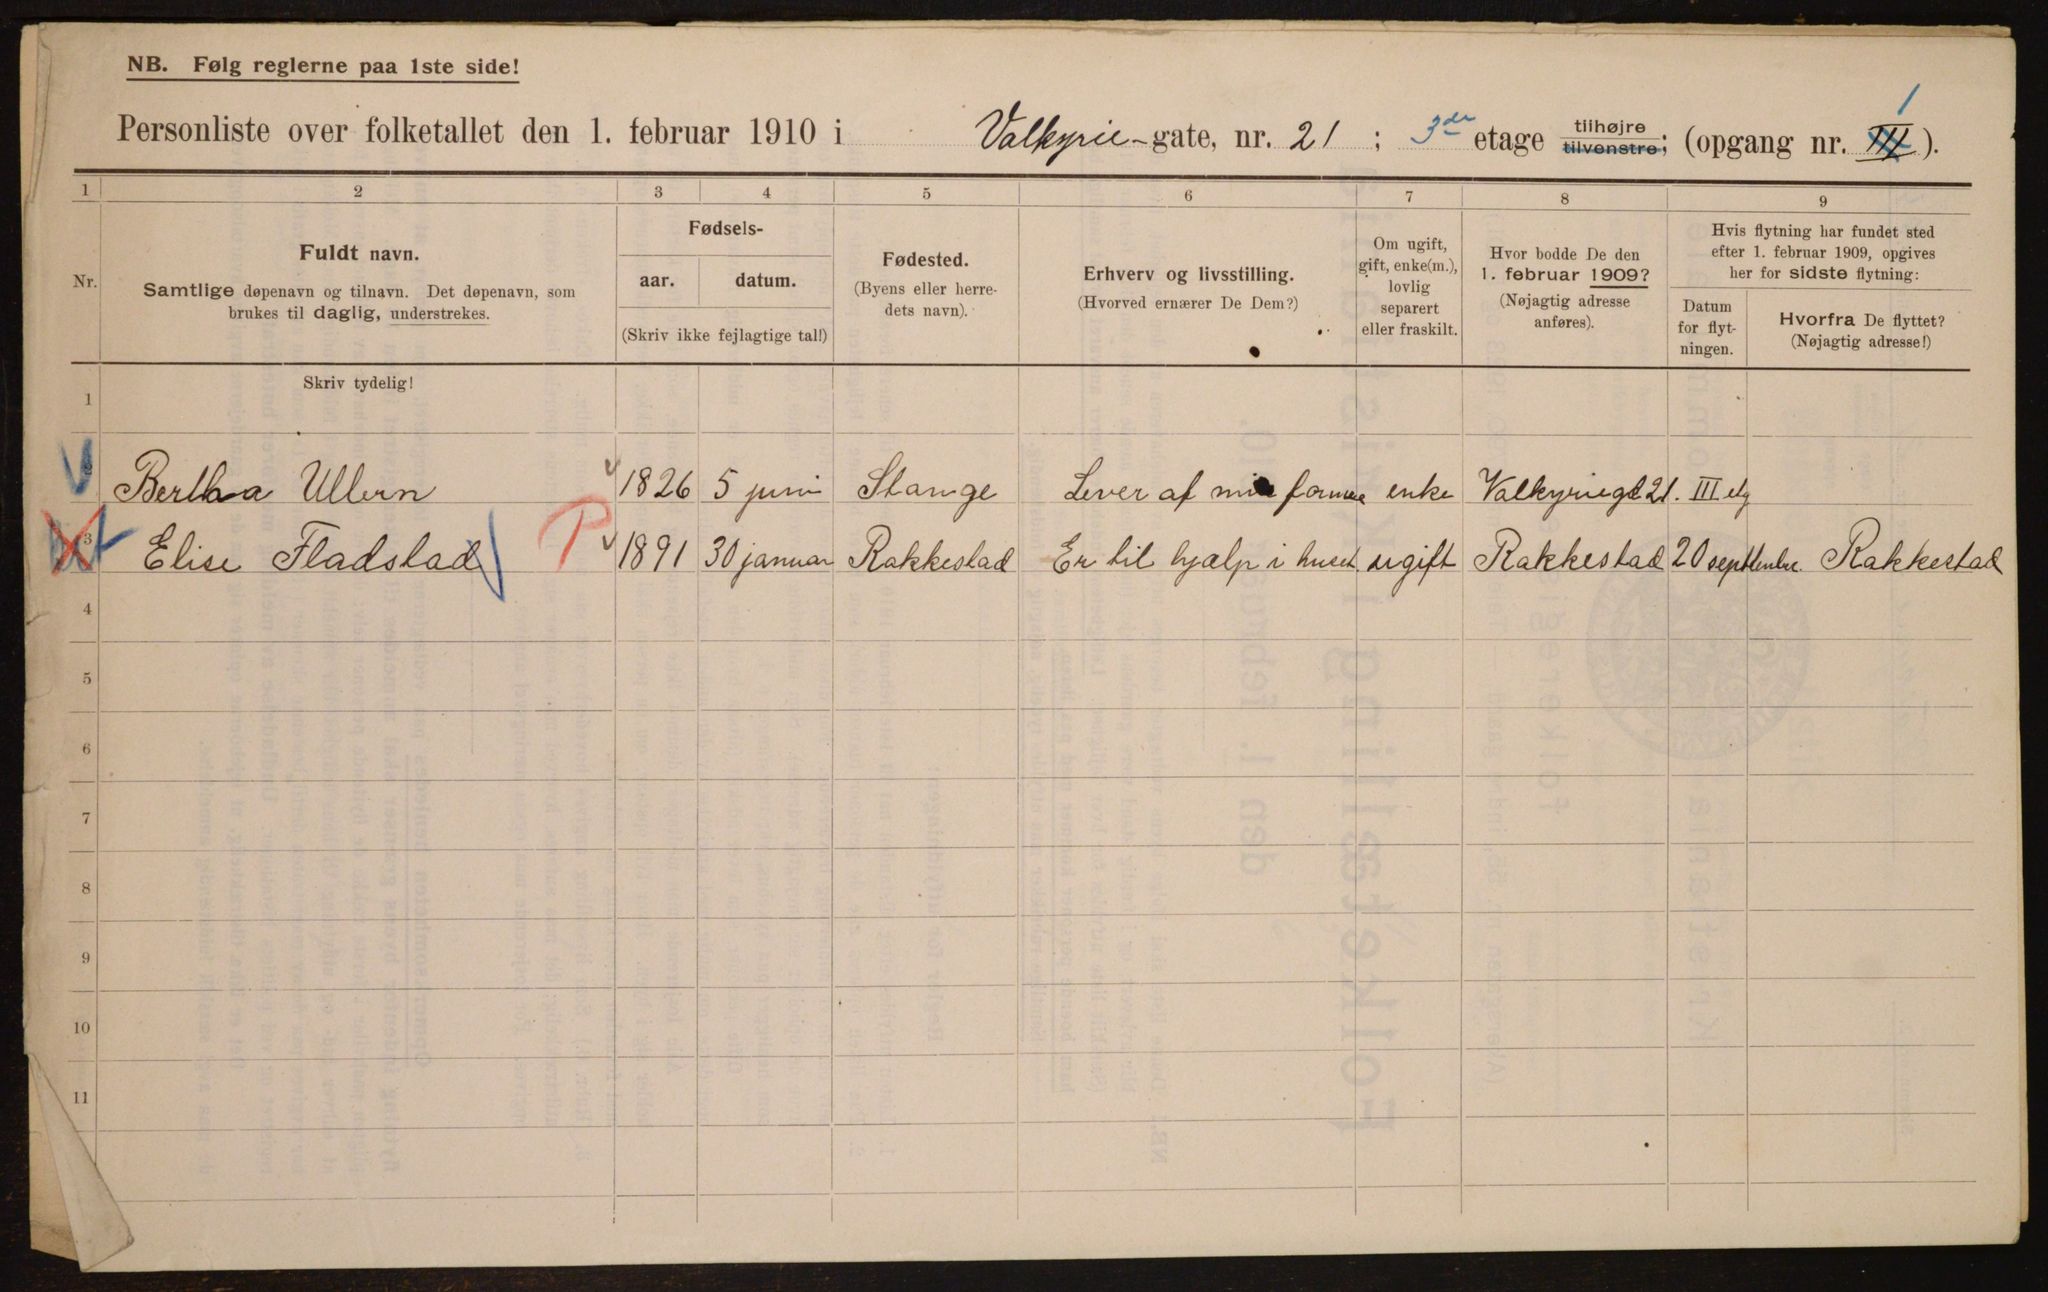 NB. Følg reglerne paa 1ste side!
Personliste over folketallet den 1. februar 1910 i Valkyrie-gate, nr. 21 ; 3de etage tilhøjre tilvenstre; (opgang nr. III 1).
1 2 3 4 5 6 7 8 9
Nr.
Fuldt navn.
Samtlige døpenavn og tilnavn. Det døpenavn, som
brukes til daglig, understrekes.
Fødsels-
aar. datum.
(Skriv ikke fejlagtige tal!)
Fødested.
(Byens eller herre-
dets navn).
Erhverv og livsstilling.
(Hvorved ernærer De Dem?)
Om ugift,
gift, enke(m.),
lovlig
separert
eller fraskilt.
Hvor bodde De den
1. februar 1909?
(Nøjagtig adresse
anføres).
Hvis flytning har fundet sted
efter 1. februar 1909, opgives
her for sidste flytning:
Datum
for flyt-
ningen.
Hvorfra De flyttet?
(Nøjagtig adresse!)
Skriv tydelig!
1
2 Bertha Ullern 1826 5 juni Stange Lever af min formue enke Valkyriegt 21. III etg
3 Elise Fladstad P 1891 30 januar Rakkestad Er til hjælp i huset ugift Rakkestad 20 septtember Rakkestad
4
5
6
7
8
9
10
11